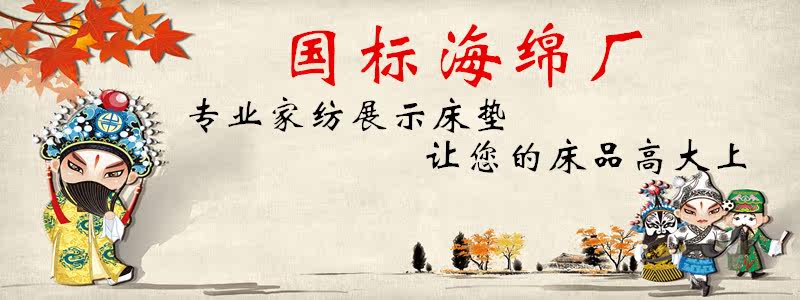 国标海绵厂
专业家纺展示床垫
让您的床品高大上